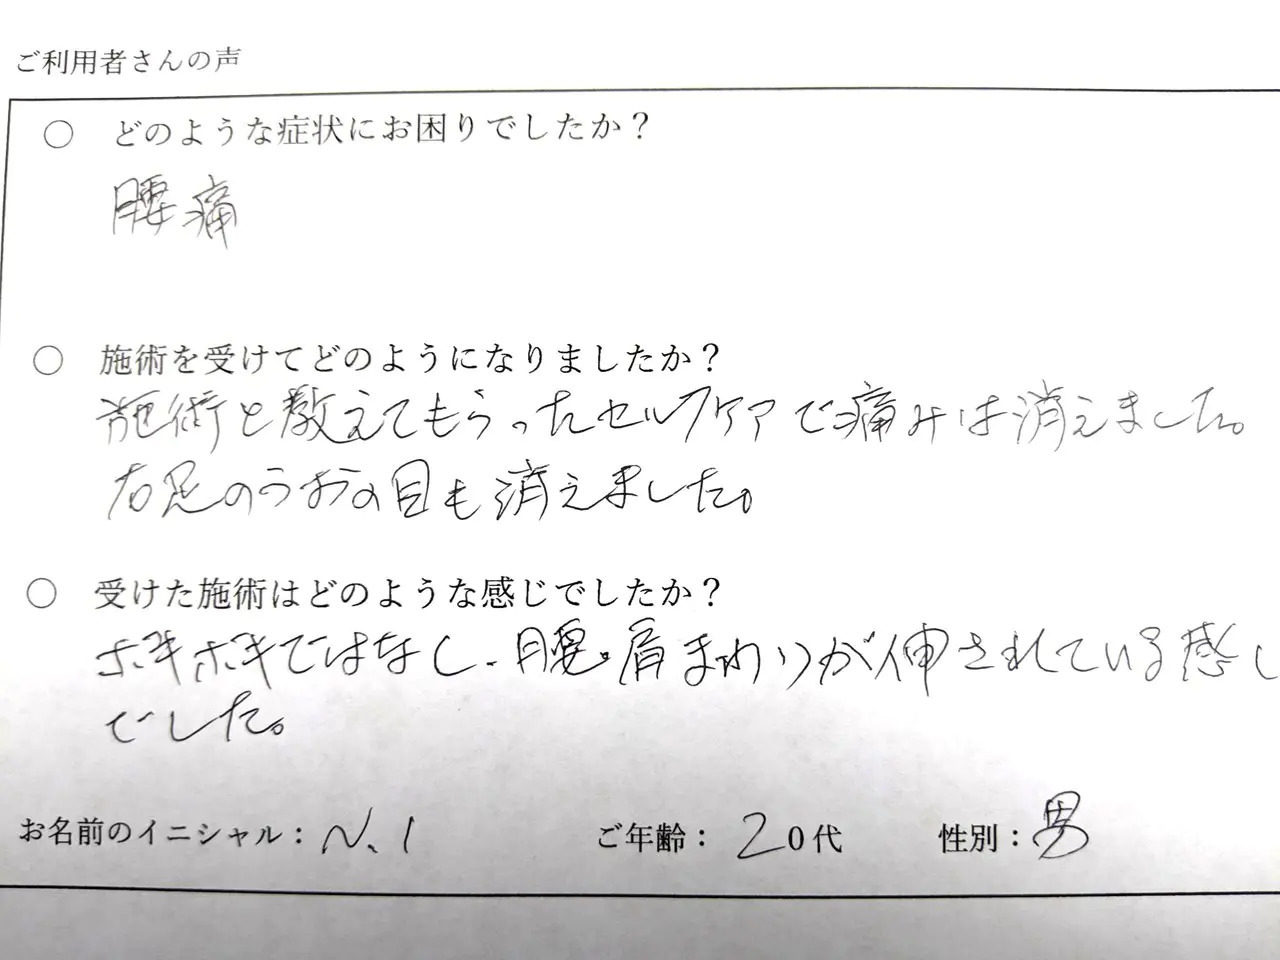 ご利用者さんの声
○ どのような症状にお困りでしたか？
腰痛
○ 施術を受けてどのようになりましたか？
施術と教えてもらったセルフケアで痛みは消えました。
右足のうおの目も消えました。
○ 受けた施術はどのような感じでしたか？
ボキボキではなし、腰・肩まわりが伸されている感じ
でした。
お名前のイニシャル： N. I ご年齢： 20代 性別：男